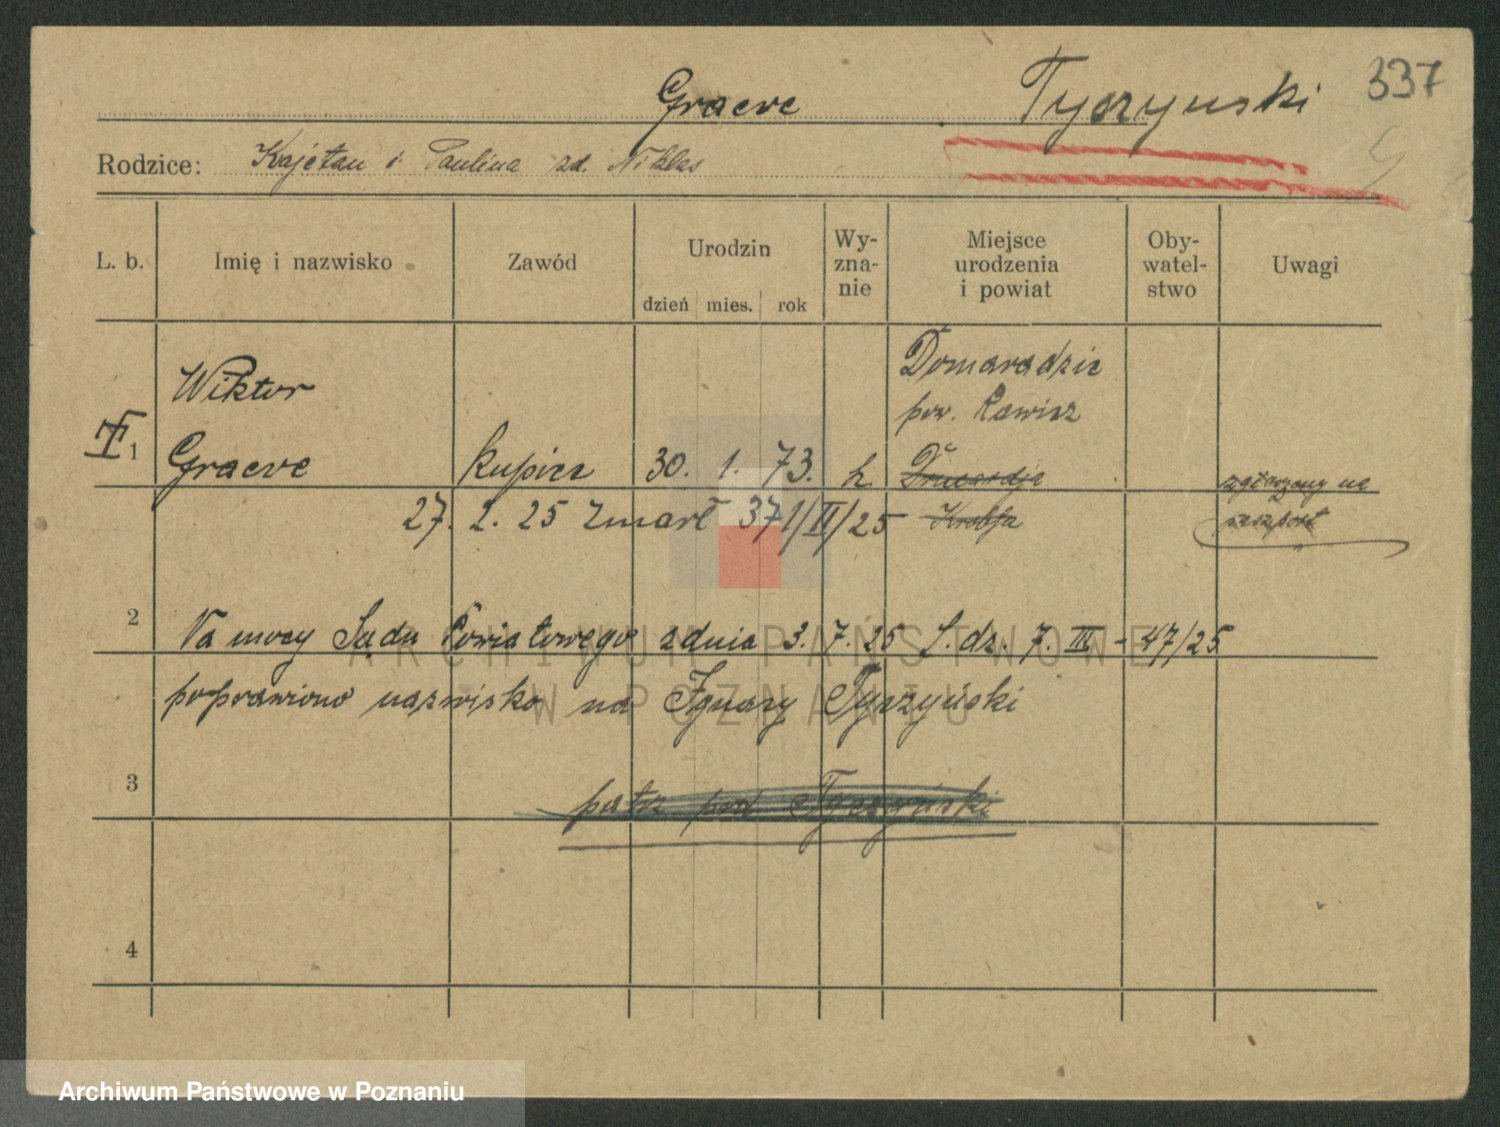 337
Graeve Tyczynski
Rodzice: Kajetan i Paulina zd. Niklas
L. b. Imię i nazwisko Zawód Urodzin dzień mies. rok Wy-zna-nie Miejsce urodzenia i powiat Oby-watel-stwo Uwagi
Wiktor Domaradzic
pow. Rawicz
1 Graeve kupiec 30. 1. 73. k.
zgłoszony na
27. 2. 25 zmarł 371/II/25 Krobja
paszport
2 Na mocy Sądu Powiatowego z dnia 3. 7. 25 L. dz. 7. III - 47/25
poprawiono nazwisko na Ignacy Tyczyński
3 patrz pod Tyczyński
4
ARCHIWUM PAŃSTWOWE
W POZNANIU
Archiwum Państwowe w Poznaniu